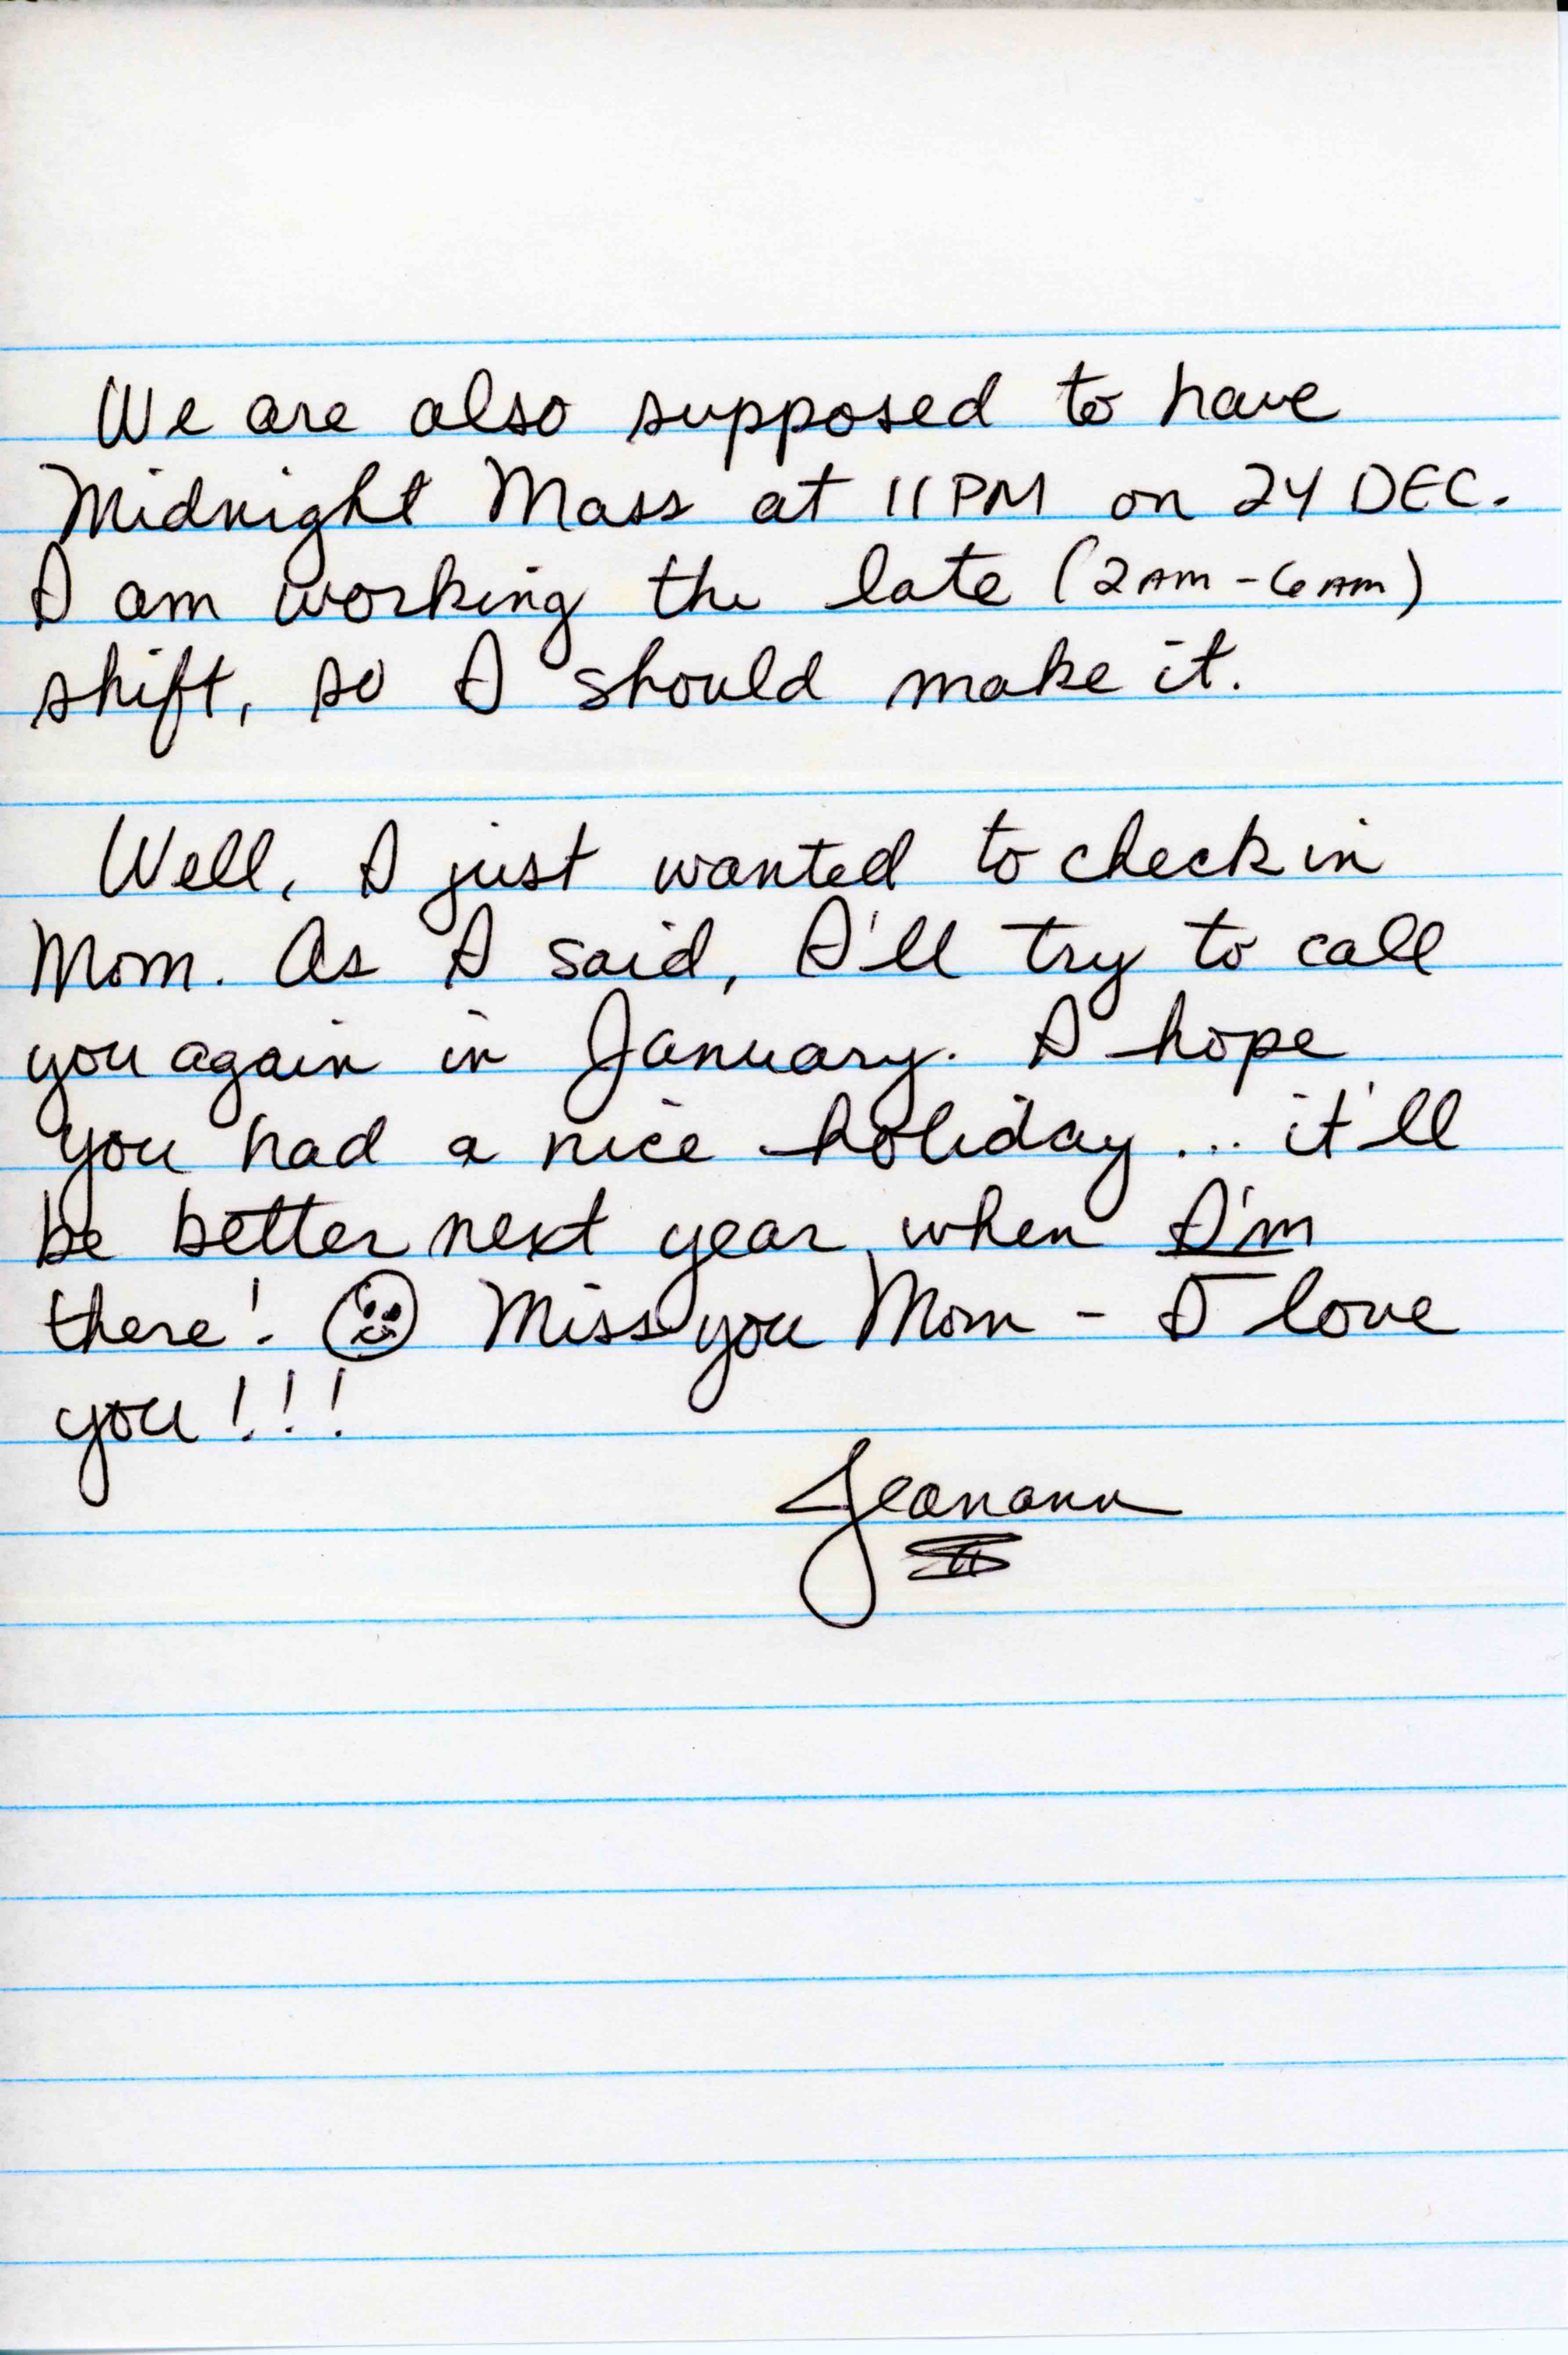 We are also supposed to have
Midnight Mass at 11PM on 24 DEC.
I am working the late (2AM-6AM)
shift, so I should make it.
Well, I just wanted to check in
Mom. As I said, I'll try to call
you again in January. I hope
you had a nice holiday... it'll
be better next year, when I'm
there! Miss you Mom - I love
you!!!
Jeanann